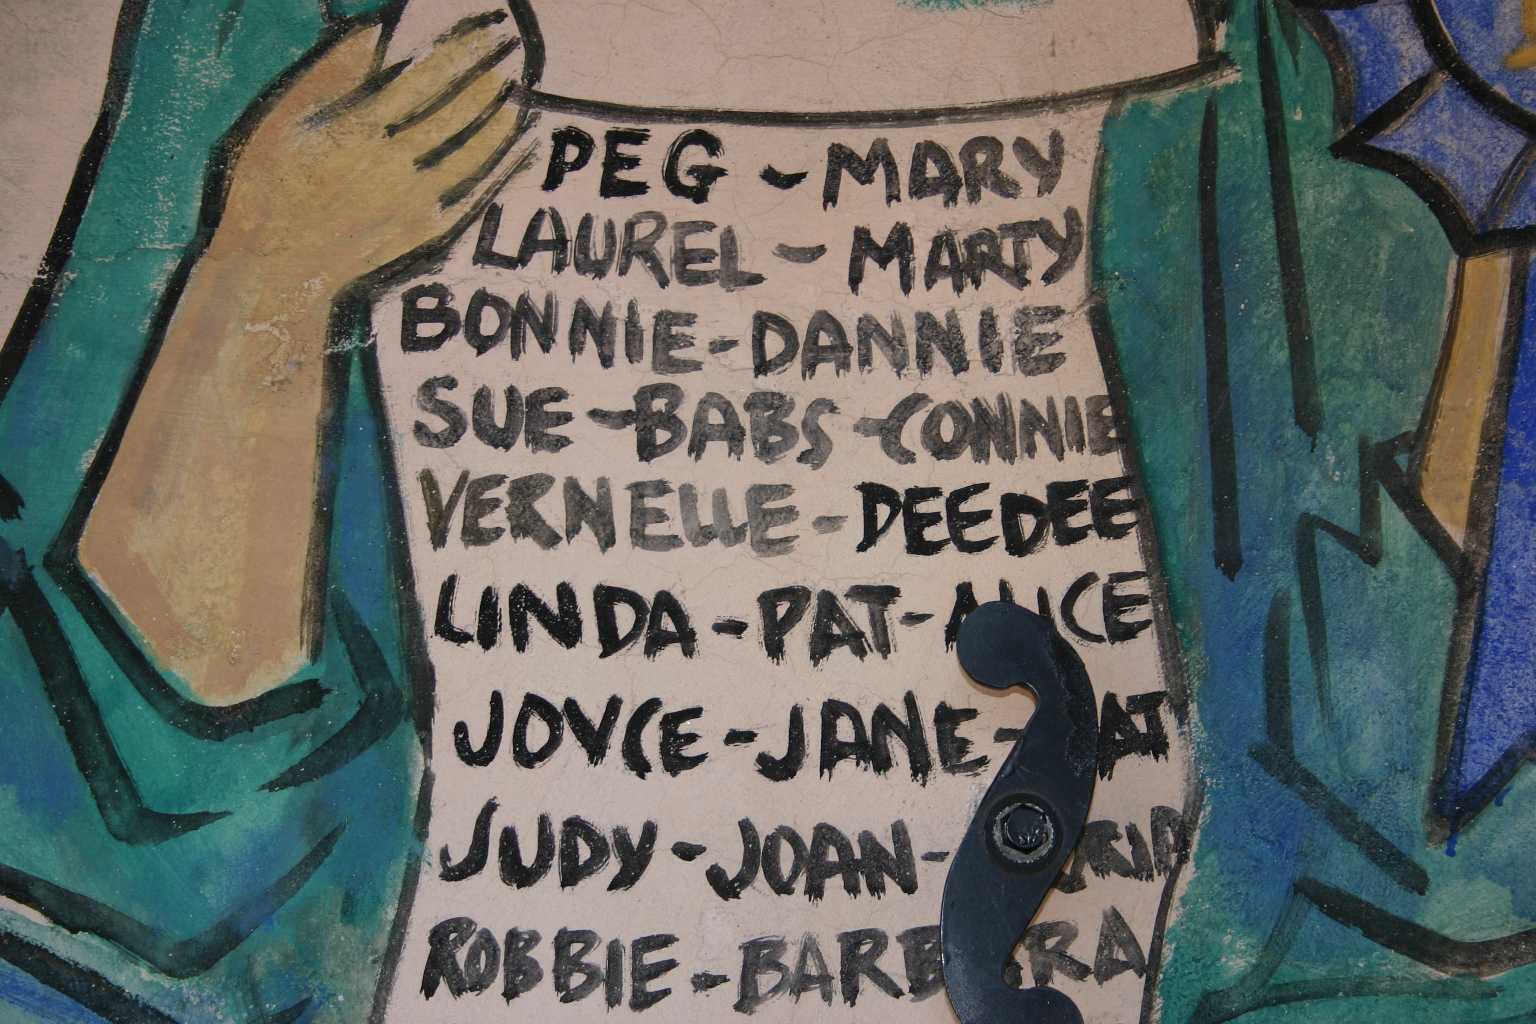 PEG - MARY
LAUREL - MARTY
BONNIE - DANNIE
SUE - BABS - CONNIE
VERNELLE - DEEDEE
LINDA - PAT - ALICE
JOYCE - JANE -
JUDY - JOAN -
ROBBIE - BARBARA